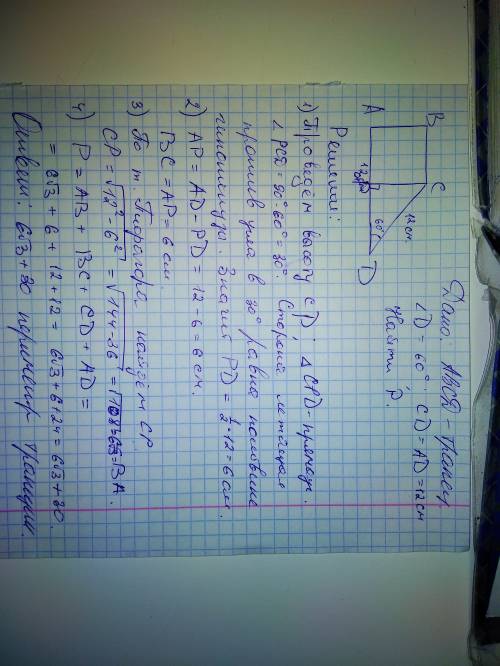 Дано: ABCD - трапец.
∠D = 60°, CD = AD = 12 см
Найти P.
B C
12 см.
A 12 P 60° D
Решение:
1) Проведем высоту CP; △CPD - прямоуг.
∠PCD = 90°-60° = 30°. Сторона, лежащая
против угла в 30° равна половине
гипотенузы. Значит PD = ½·12 = 6 см.
2) AP = AD - PD = 12 - 6 = 6 см.
BC = AP = 6 см.
3) По т. Пифагора найдем CP.
CP = √12² - 6² = √144-36 = √108 = 6√3 = BA.
4) P = AB + BC + CD + AD =
= 6√3 + 6 + 12 + 12 = 6√3 + 6 + 24 = 6√3 + 30.
Ответ: 6√3 + 30 периметр трапеции.